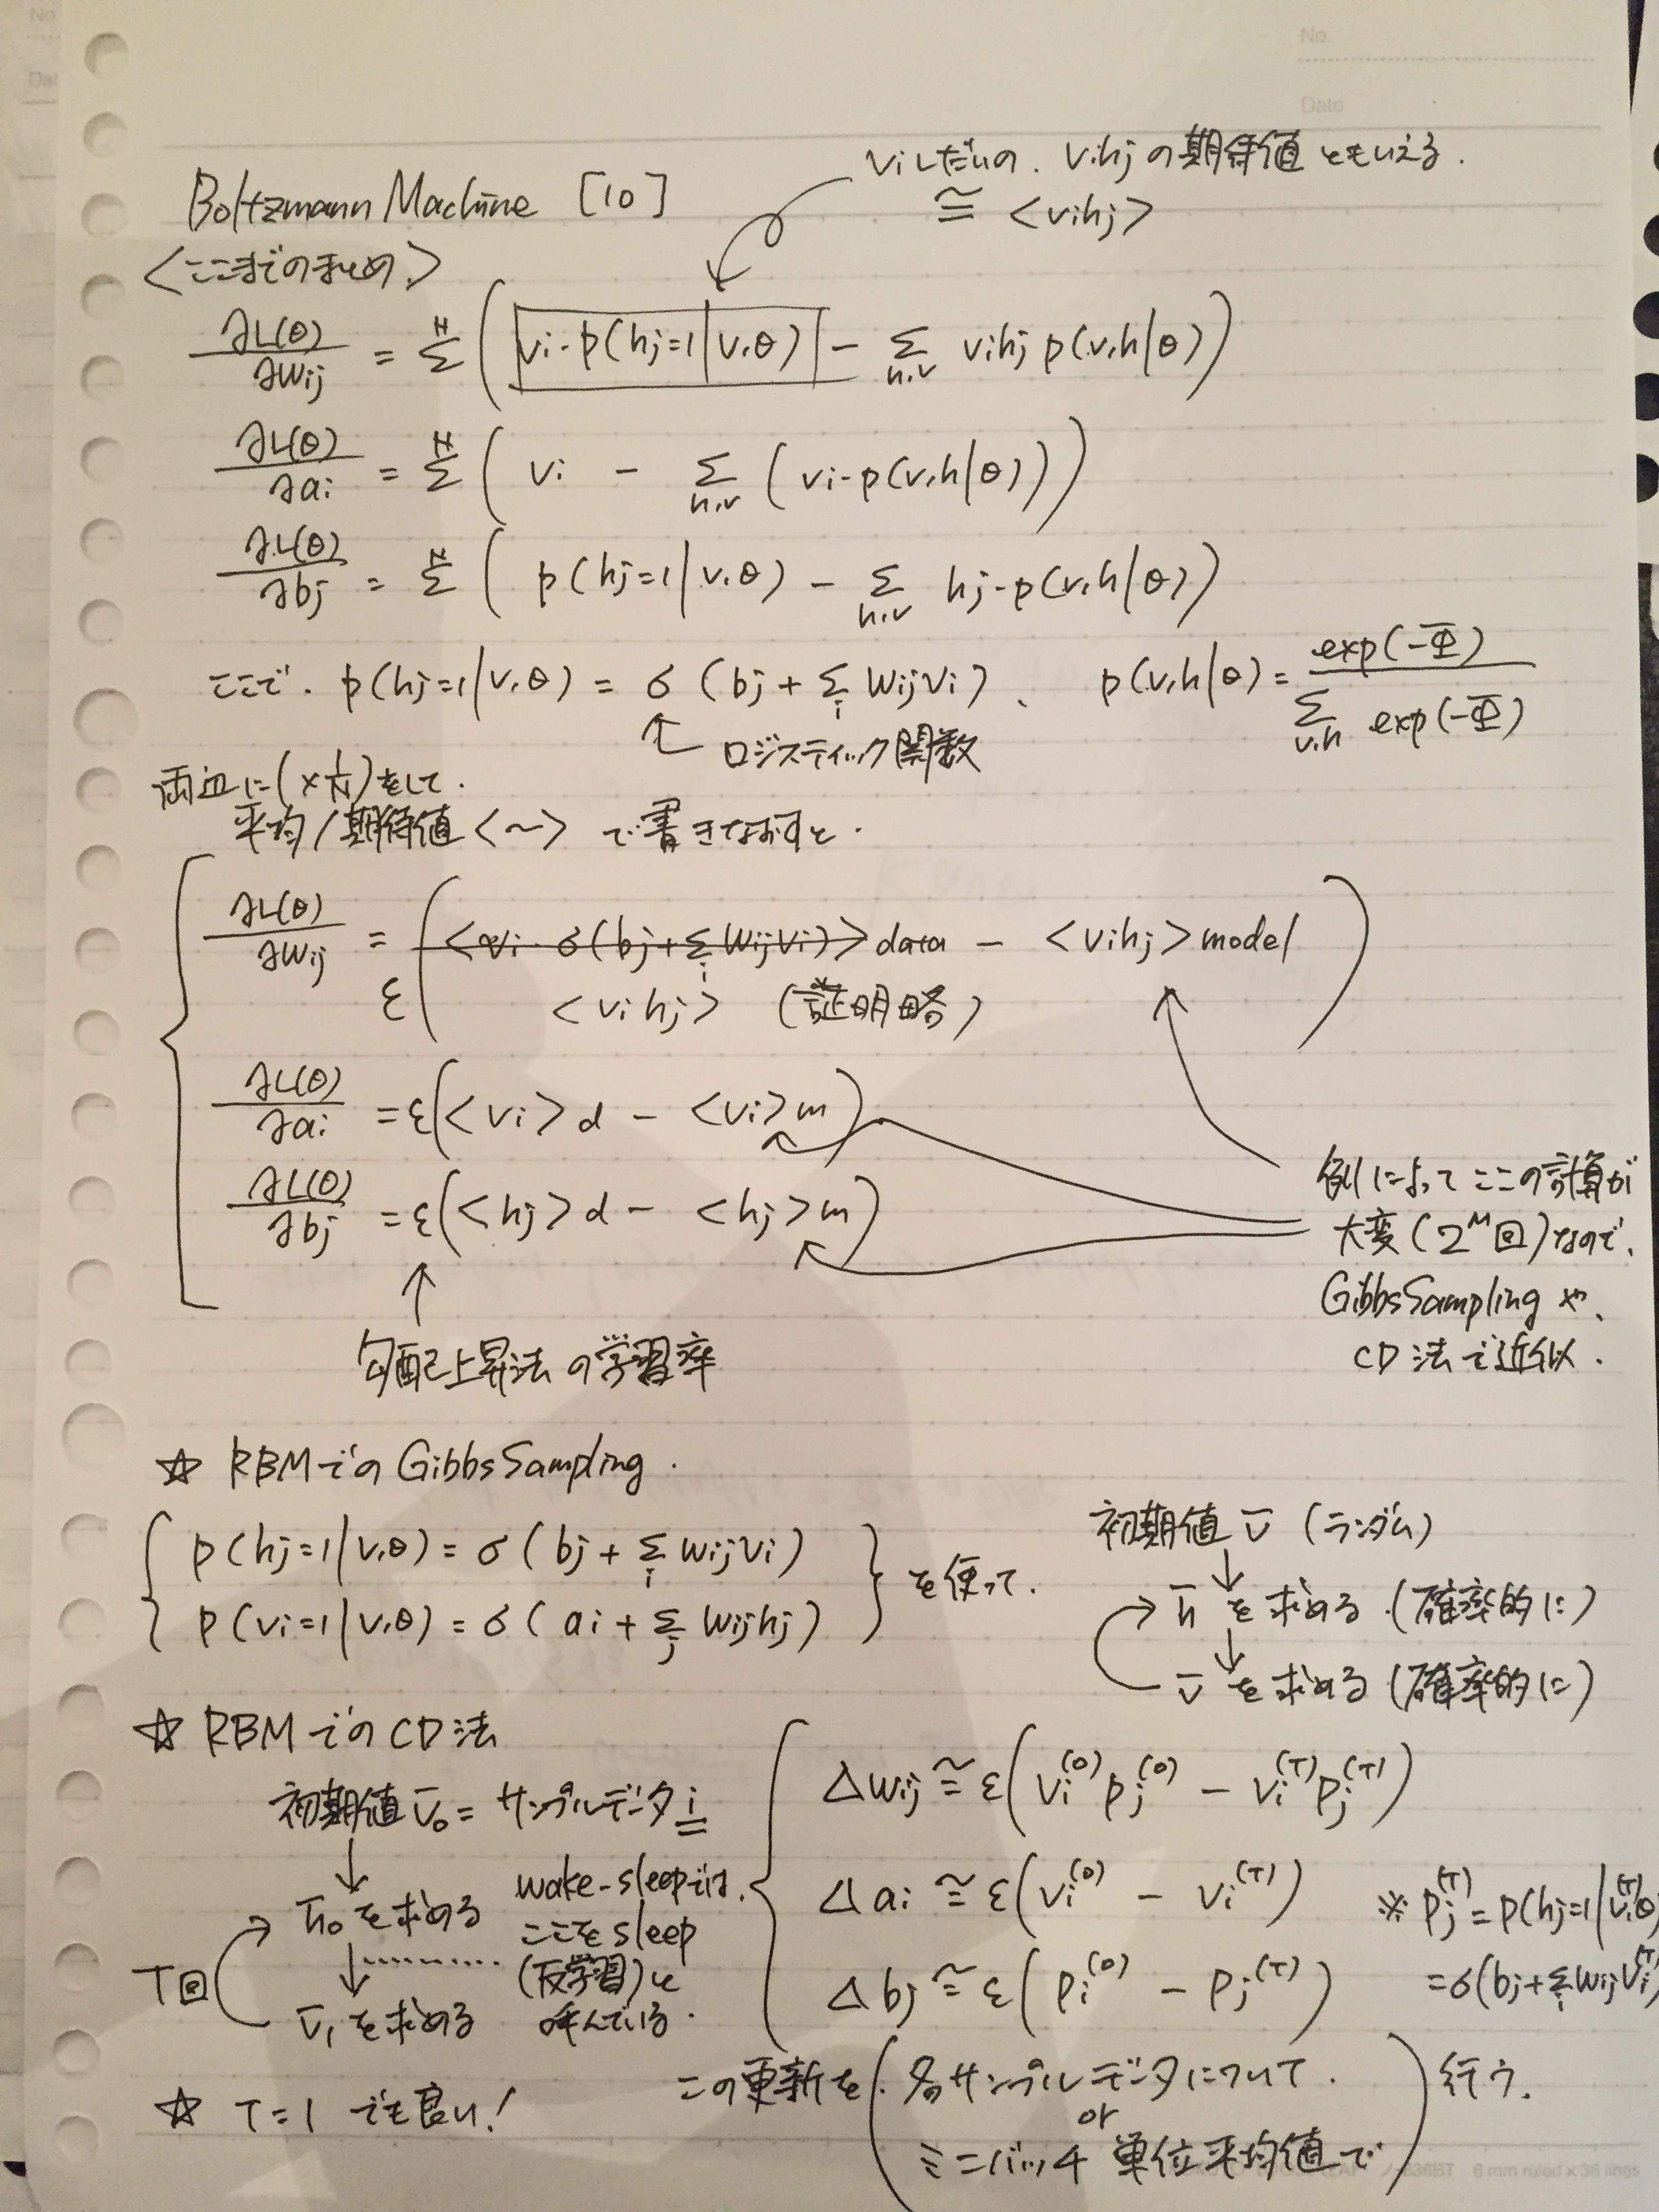 No.
Date
Boltzmann Machine [10]
viしだいの、vihjの期待値ともいえる.
≅ <vihj>
<ここまでのまとめ.>
∂L(θ)/∂wij = Σ^N ( vi・p(hj=1|v,θ) - Σ_{h,v} vihj p(v,h|θ) )
∂L(θ)/∂ai = Σ^N ( vi - Σ_{h,v} (vi・p(v,h|θ)) )
∂L(θ)/∂bj = Σ^N ( p(hj=1|v,θ) - Σ_{h,v} hj・p(v,h|θ) )
ここで、p(hj=1|v,θ) = σ(bj + Σ_i wijvi)、 p(v,h|θ) = exp(-Φ) / Σ_{v,h} exp(-Φ)
ロジスティック関数
両辺に(×1/N)をして.
平均/期待値<~>で書きなおすと.
∂L(θ)/∂wij = ε( <vi・σ(bj+Σ_i wijvi)>data - <vihj>model )
<vihj> (証明略)
∂L(θ)/∂ai = ε(<vi>d - <vi>m)
∂L(θ)/∂bj = ε(<hj>d - <hj>m)
勾配上昇法の学習率
例によってここの計算が
大変(2^M回)なので、
GibbsSamplingや、
CD法で近似.
☆ RBMでのGibbsSampling.
p(hj=1|v,θ) = σ(bj + Σ_i wijvi)
p(vi=1|v,θ) = σ(ai + Σ_j wijhj)
を使って.
初期値v̄ (ランダム)
↓
h̄を求める.(確率的に)
↓
v̄を求める(確率的に)
☆ RBMでのCD法
初期値v̄₀ = サンプルデータi
↓
h̄₀を求める
↓
v̄₁を求める
T回
wake-sleepでは、
ここをsleep
(反学習)と
呼んでいる.
Δwij ≅ ε(vi^(0)pj^(0) - vi^(T)pj^(T))
Δai ≅ ε(vi^(0) - vi^(T))
Δbj ≅ ε(pi^(0) - pj^(T))
※ pj^(T) = p(hj=1|vi^(T),θ
=σ(bj+Σ_i wijvi^(T)
この更新を.(各サンプルデータについて.
or
ミニバッチ単位平均値で) 行う.
☆ T=1 でも良い!
836BT 6 mm ruled x 36 lines